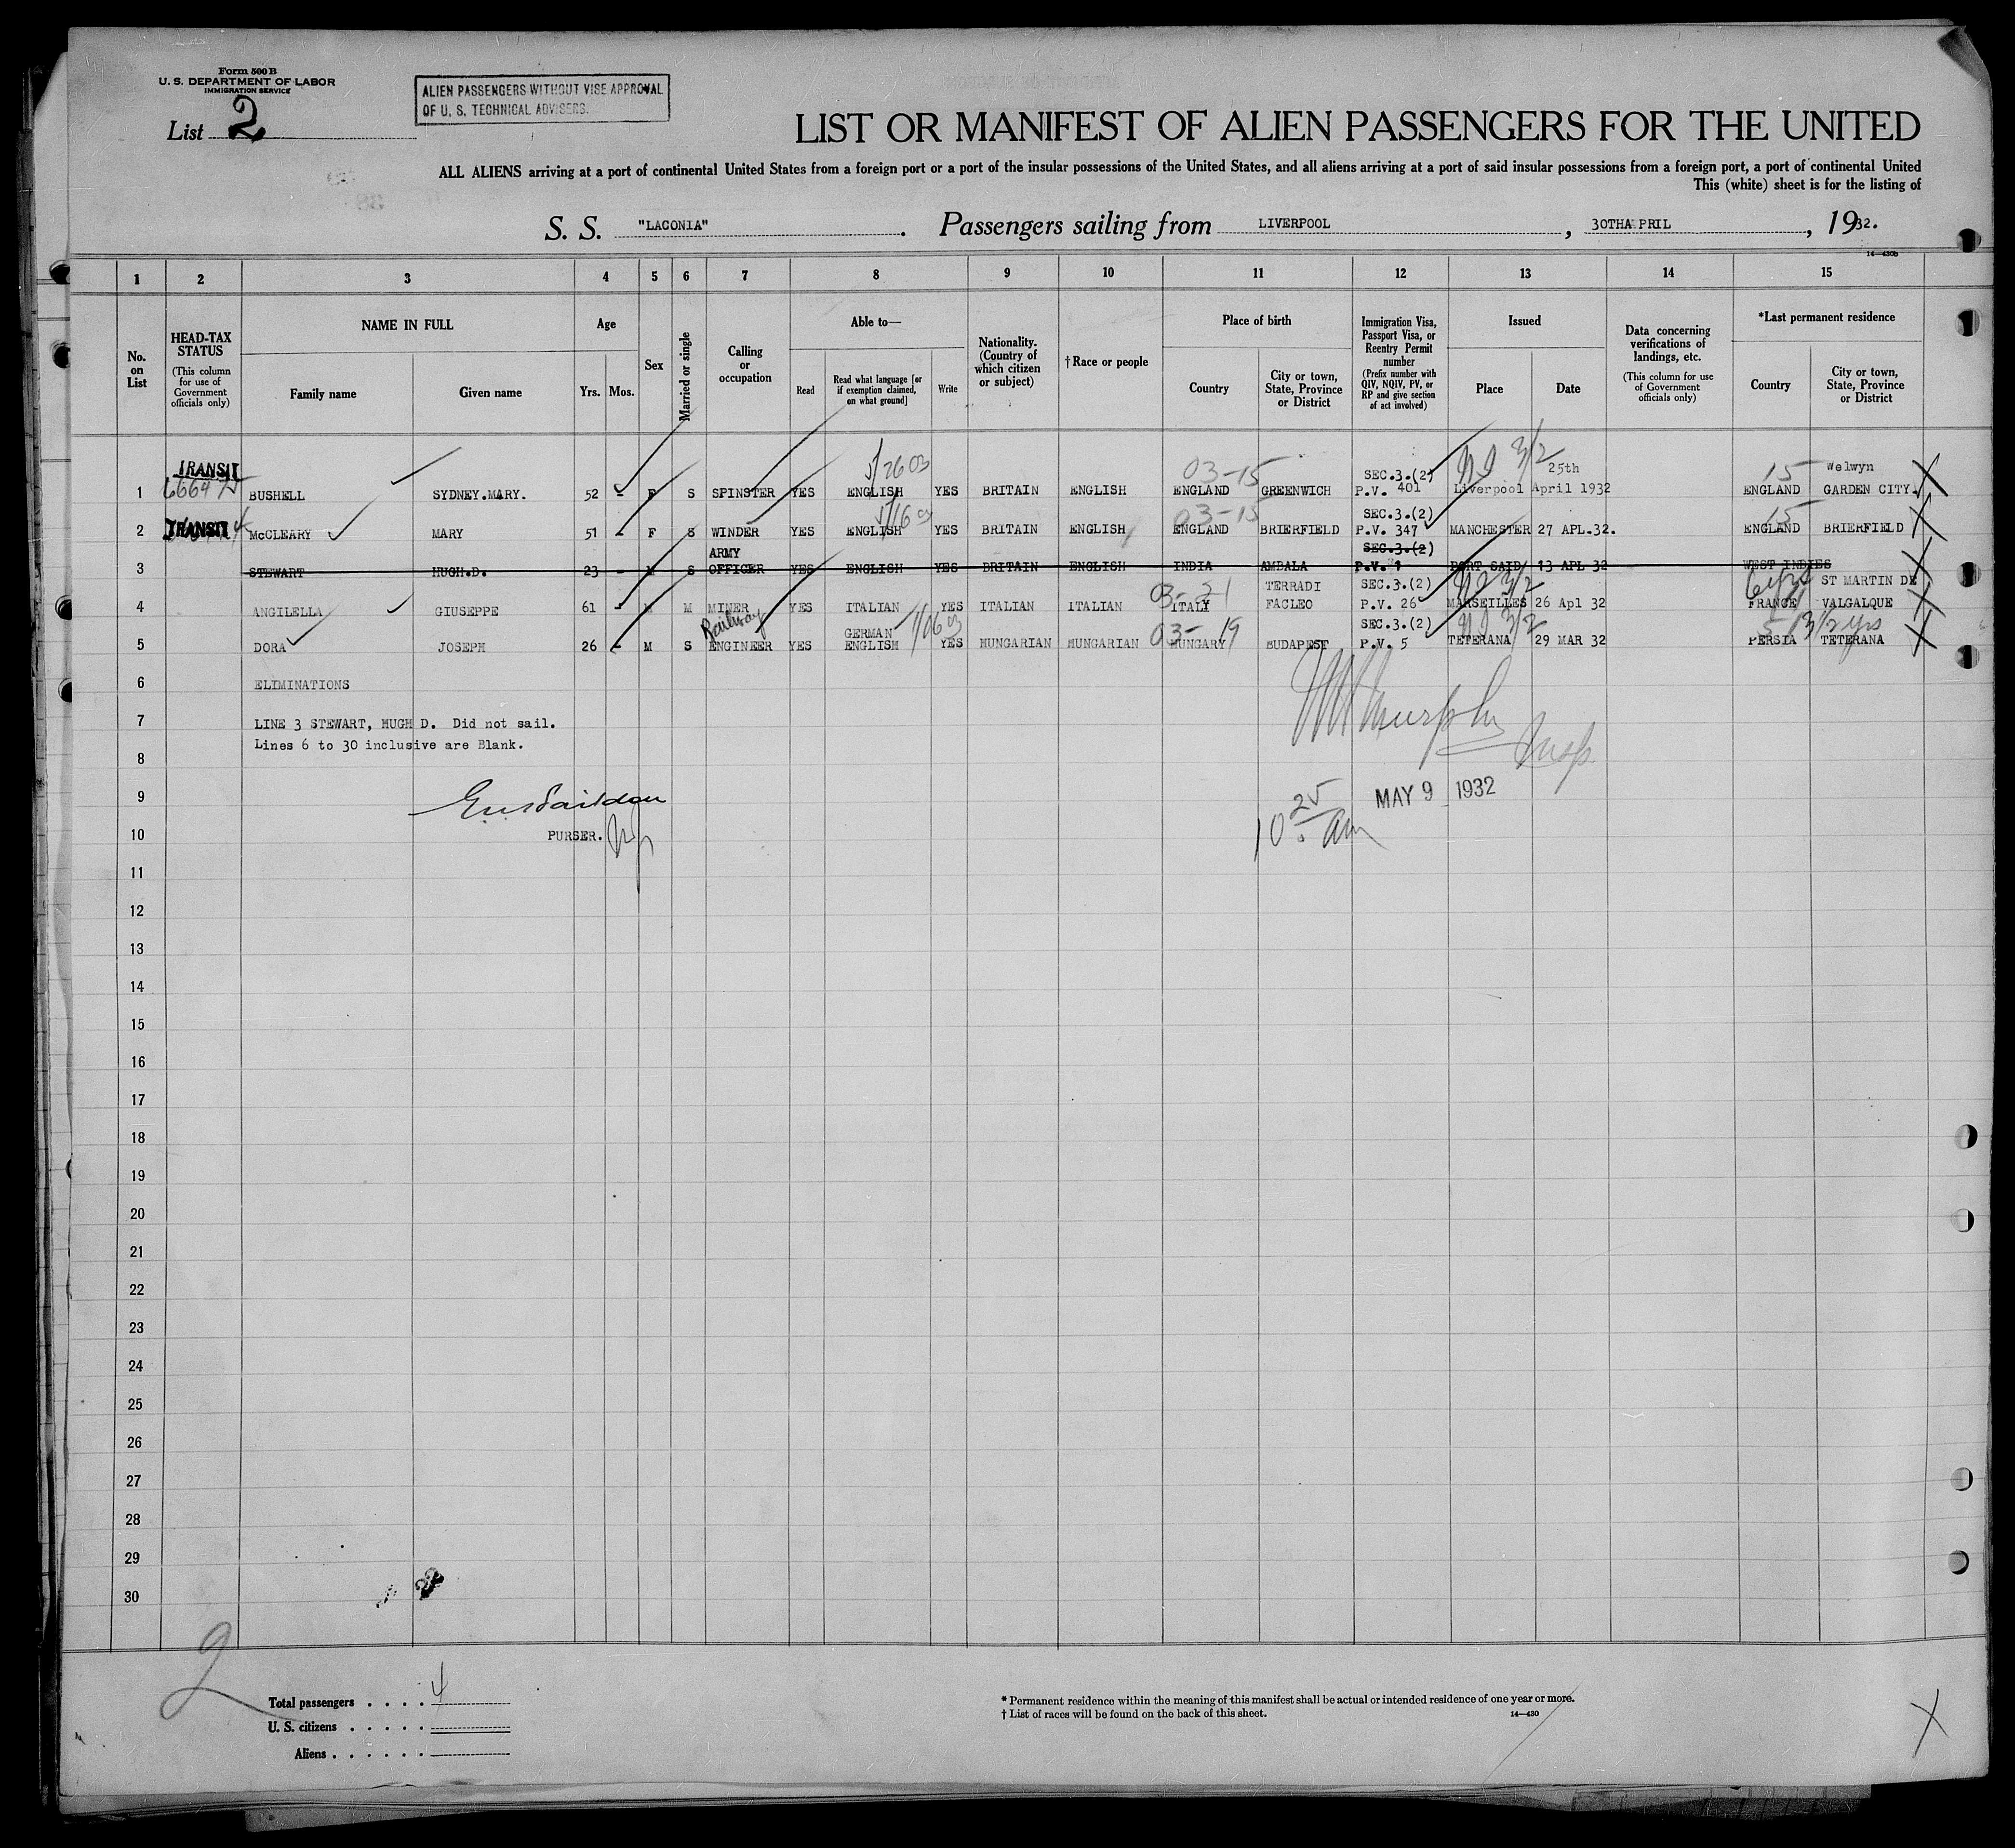 Form 500 B
U. S. DEPARTMENT OF LABOR
IMMIGRATION SERVICE
List 2
ALIEN PASSENGERS WITHOUT VISE APPROVAL
OF U. S. TECHNICAL ADVISERS.
LIST OR MANIFEST OF ALIEN PASSENGERS FOR THE UNITED
ALL ALIENS arriving at a port of continental United States from a foreign port or a port of the insular possessions of the United States, and all aliens arriving at a port of said insular possessions from a foreign port, a port of continental United
This (white) sheet is for the listing of
S. S. "LACONIA". Passengers sailing from LIVERPOOL, 30THAPRIL, 1932.
14—430b
1 2 3 4 5 6 7 8 9 10 11 12 13 14 15
No. on List
HEAD-TAX STATUS (This column for use of Government officials only)
NAME IN FULL
Family name
Given name
Age
Yrs. Mos.
Sex
Married or single
Calling or occupation
Able to—
Read
Read what language [or if exemption claimed, on what ground]
Write
Nationality. (Country of which citizen or subject)
†Race or people
Place of birth
Country
City or town, State, Province or District
Immigration Visa, Passport Visa, or Reentry Permit number (Prefix number with QIV, NQIV, PV, or RP and give section of act involved)
Issued
Place
Date
Data concerning verifications of landings, etc. (This column for use of Government officials only)
*Last permanent residence
Country
City or town, State, Province or District
TRANSIT 5/2603 03-15 SEC.3.(2) 3/2 25th 15 Welwyn
1 BUSHELL SYDNEY.MARY. 52 - F S SPINSTER YES ENGLISH YES BRITAIN ENGLISH ENGLAND GREENWICH P.V. 401 Liverpool April 1932 ENGLAND GARDEN CITY. X
03-15 SEC.3.(2) 15
2 TRANSIT McCLEARY MARY 51 - F S WINDER YES ENGLISH YES BRITAIN ENGLISH ENGLAND BRIERFIELD P.V. 347 MANCHESTER 27 APL.32. ENGLAND BRIERFIELD X
ARMY SEC.3.(2)
3 STEWART HUGH.D. 23 - M S OFFICER YES ENGLISH YES BRITAIN ENGLISH INDIA AMBALA P.V. 1 PORT SAID 13 APL 32 WEST INDIES X
03-21 TERRADI SEC.3.(2) 3/2 ST MARTIN DE
4 ANGILELLA GIUSEPPE 61 - M M MINER YES ITALIAN YES ITALIAN ITALIAN ITALY FACLEO P.V. 26 MARSEILLES 26 Apl 32 FRANCE VALGALQUE X
Railway GERMAN 03-19 SEC.3.(2) 3/2 3 1/2 yrs
5 DORA JOSEPH 26 - M S ENGINEER YES ENGLISH YES HUNGARIAN HUNGARIAN HUNGARY BUDAPEST P.V. 5 TETERANA 29 MAR 32 PERSIA TETERANA X
6 ELIMINATIONS
7 LINE 3 STEWART, HUGH D. Did not sail.
Lines 6 to 30 inclusive are Blank.
Murphy
Insp
8
9
MAY 9 1932
10 25 am
10 PURSER.
11
12
13
14
15
16
17
18
19
20
21
22
23
24
25
26
27
28
29
30
2
Total passengers . . . . 4
U. S. citizens . . . . .
Aliens . . . . . .
* Permanent residence within the meaning of this manifest shall be actual or intended residence of one year or more.
† List of races will be found on the back of this sheet.
14—430
X